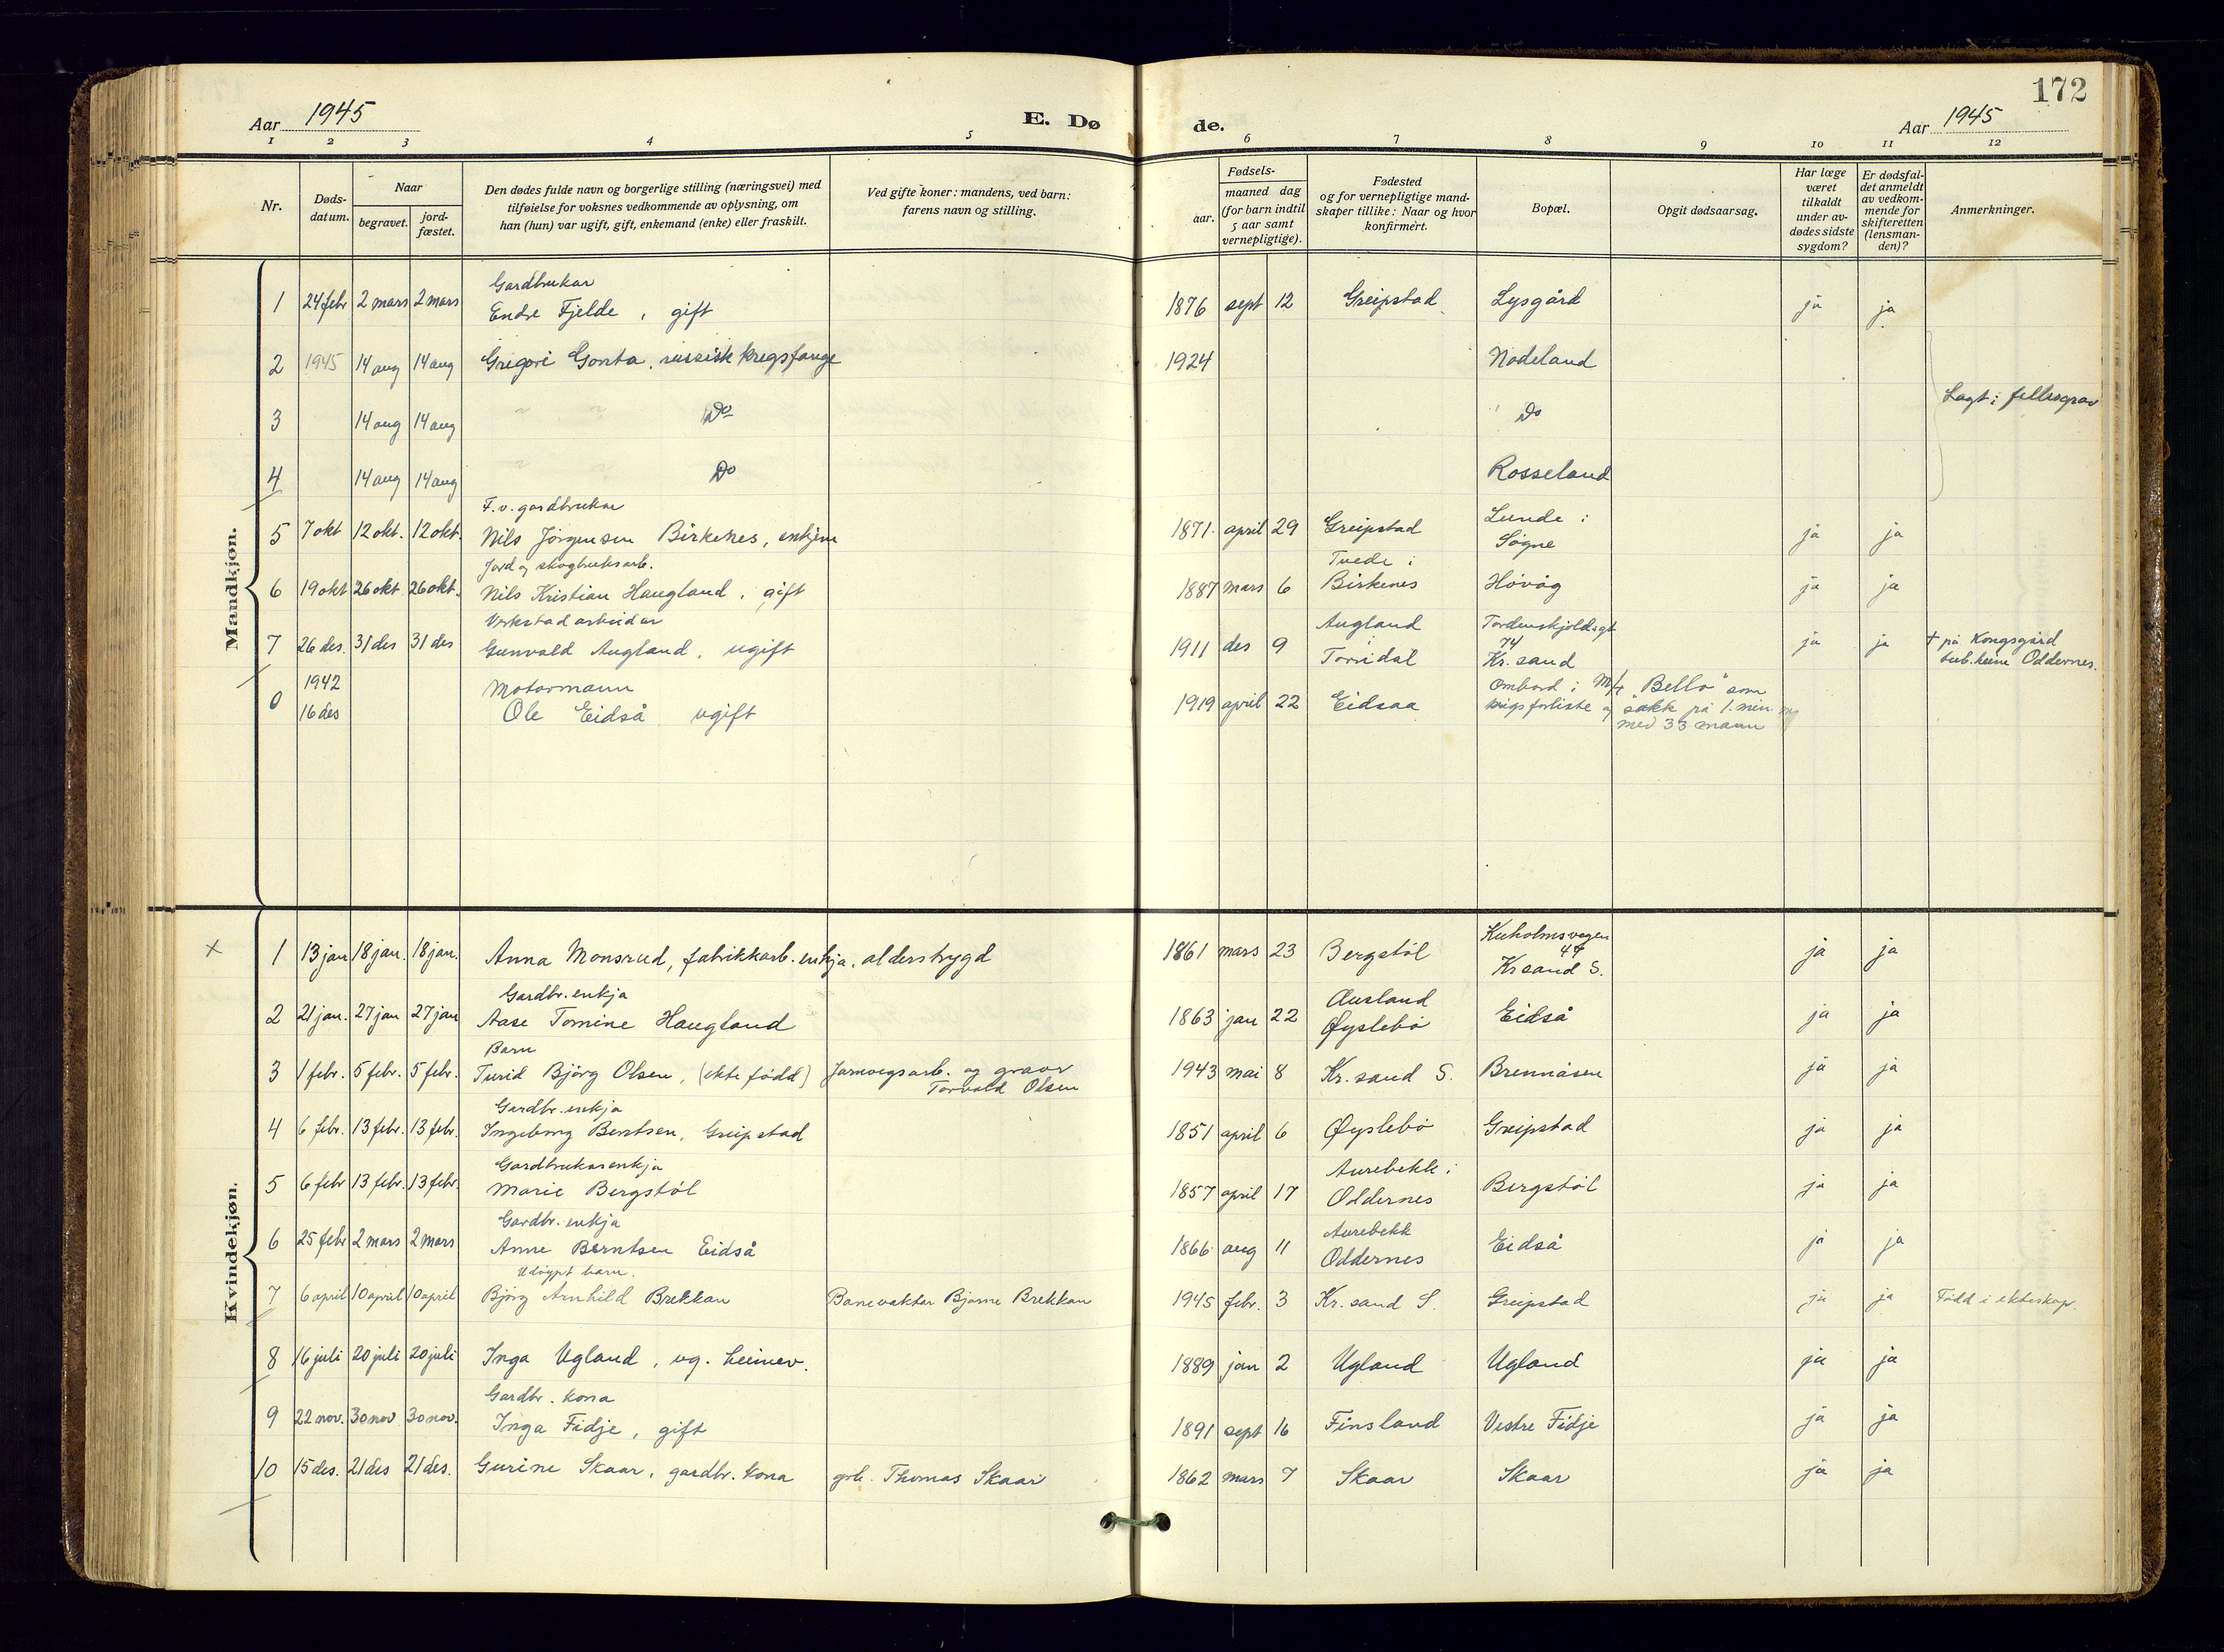 172
Aar 1945
E. Dø de.
Aar 1945
1 2 3 4 5 6 7 8 9 10 11 12
Nr.
Døds-
datum.
Naar
begravet.
jord-
fæstet.
Den dødes fulde navn og borgerlige stilling (næringsvei) med
tilføielse for voksnes vedkommende av oplysning, om
han (hun) var ugift, gift, enkemand (enke) eller fraskilt.
Ved gifte koner: mandens, ved barn:
farens navn og stilling.
Fødsels-
aar.
maaned dag
(for barn indtil
5 aar samt
vernepligtige).
Fødested
og for vernepligtige mand-
skaper tillike: Naar og hvor
konfirmert.
Bopæl.
Opgit dødsaarsag.
Har læge
været
tilkaldt
under av-
dødes sidste
sygdom?
Er dødsfal-
det anmeldt
av vedkom-
mende for
skifteretten
(lensman-
den)?
Anmerkninger.
Mandkjøn.
Gardbrukar
1 24 febr 2 mars 2 mars Endre Fjelde, gift 1876 sept 12 Greipstad Lysgård ja ja
2 1945 14 aug 14 aug Grigori Gonta, russisk krigsfange 1924 Nodeland
Lagt i fellesgrav
3 14 aug 14 aug " " Do " Do
4 14 aug 14 aug " " Do Rosseland
F.v. gardbrukar
5 7 okt 12 okt. 12 okt. Nils Jörgensen Birkenes, enkjem 1871 april 29 Greipstad Lunde i
Sögne ja ja
Jord og skogbruksarb. Tvede i
6 19 okt 26 okt. 26 okt. Nils Kristian Haugland, gift 1887 mars 6 Birkenes Hövåg ja ja
Verkstadarbeidar Augland Tordenskjoldsgt
7 26 des. 31 des 31 des Gunvald Augland, ugift 1911 des 9 i 74 ja ja † på Kongsgård
Torridal Kr.sand tub.heim Oddernes.
1942 Motormann Ombord i M/t "Bello" som
0 16 des Ole Eidså ugift 1919 april 22 Eidsaa krigsforliste og sakk på 1. min.
med 33 mann
Kvindekjøn.
Kuholmsvegen
x 1 13 jan 18 jan. 18 jan. Anna Monsrud, fabrikkarb. enkja, alderstrygd 1861 mars 23 Bergstöl 44 ja ja
Krsand S.
Gardbr. enkja Ausland
2 21 jan. 27 jan 27 jan Aase Tomine Haugland 1863 jan 22 Øyslebö Eidså ja ja
Barn
3 1 febr. 5 febr. 5 febr. Turid Björg Olsen, (ekte född) Jarnvegsarb. og gravar 1943 mai 8 Kr.sand S. Brennåsen ja ja
Torvald Olsen
Gardbr. enkja
4 6 febr. 13 febr. 13 febr. Ingeborg Berntsen, Greipstad 1851 april 6 Øyslebö Greipstad ja ja
Gardbrukarenkja Aurebekk i
5 6 febr 13 febr. 13 febr. Marie Bergstöl 1857 april 17 Oddernes Bergstöl ja ja
Gardbr. enkja Aurebekk
6 25 febr 2 mars 2 mars Anne Berntsen Eidså 1866 aug 11 Oddernes Eidså ja ja
Udöypt barn.
7 6 april 10 april 10 april Björg Arnhild Brekkan Banevaktar Bjarne Brekkan 1945 febr. 3 Kr.sand S. Greipstad ja ja Född i ekteskap.
8 16 juli 20 juli 20 juli Inga Ugland, ug. heimev. 1889 jan 2 Ugland Ugland ja ja
Gardbr. kona
9 22 nov. 30 nov 30 nov. Inga Fidje, gift 1891 sept 16 Finsland Vestre Fidje ja ja
10 15 des. 21 des 21 des. Gurine Skaar, gardbr. kona grb. Thomas Skaar 1862 mars 7 Skaar Skaar ja ja